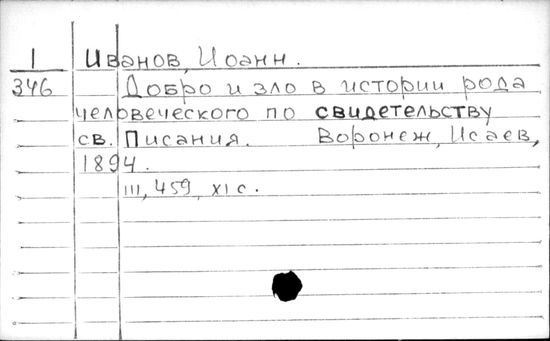 1 Иванов, Иоанн.
346 Добро и зло в истории рода
человеческого по свидетельству
св. Писания. Воронеж, Исаев,
1894.
III, 459, XI с.